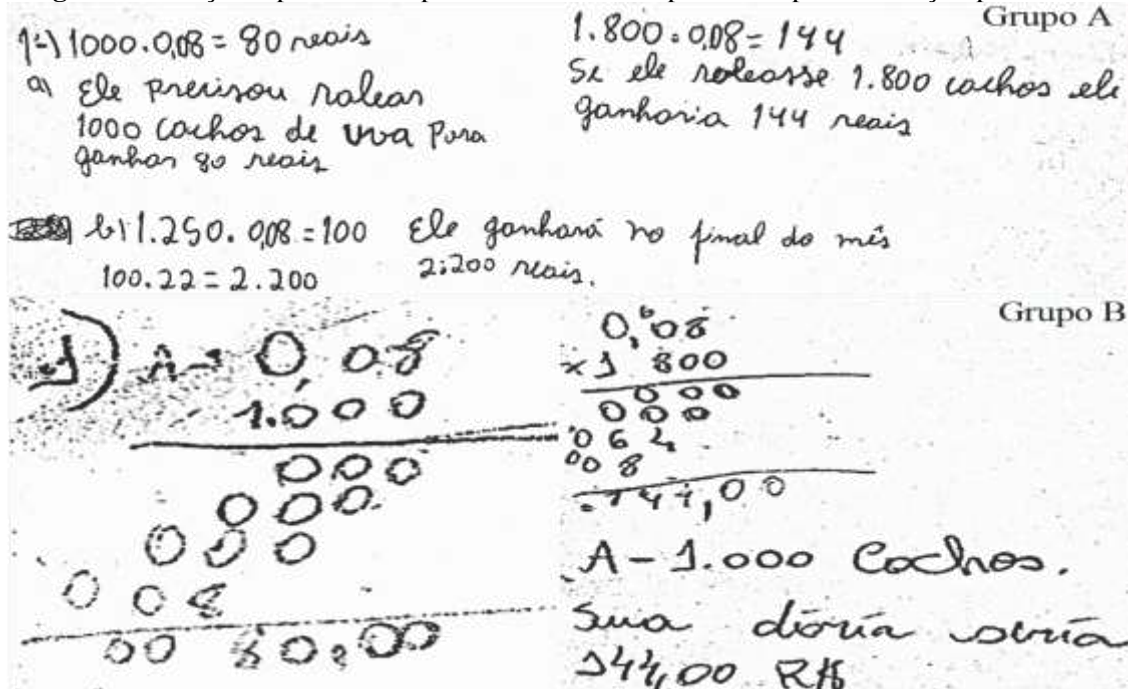 Grupo A
1-) 1000.0,08 = 80 reais
a) Ele precisou ralear
1000 cachos de uva para
ganhar 80 reais
1.800.0,08 = 144
Se ele raleasse 1.800 cachos ele
ganharia 144 reais
b) 1.250.0,08 = 100 Ele ganhará no final do mês
100.22 = 2.200 2.200 reais.
Grupo B
1) A- 0,08
1.000
000
000
000
008
00 80,00
0,08
x 1 800
000
000
064
008
144,00
A - 1.000 Cachos.
Sua diária seria
144,00 R$